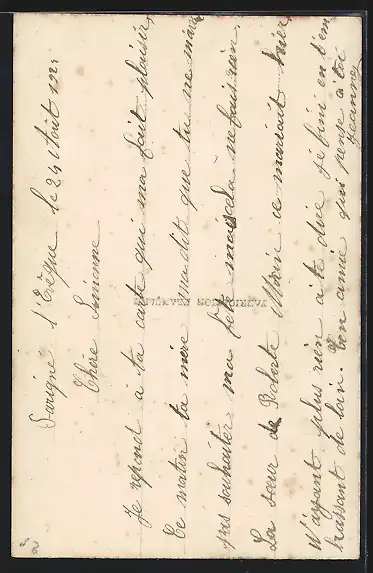 Savigné l'Evêque le 24 Août 192
Chère Simonne
Je répond à ta carte qui ma fait plaisir,
Ce matin ta mère ma dit que tu ne m'avais
pas souhaiter ma fête mais cela ne fais rien.
La sœur de Roberte Morin ce mariait hier,
N'ayant plus rien à te dire je fini en t'em
brassant de loin. Ton amie qui pense à toi
Jeanne